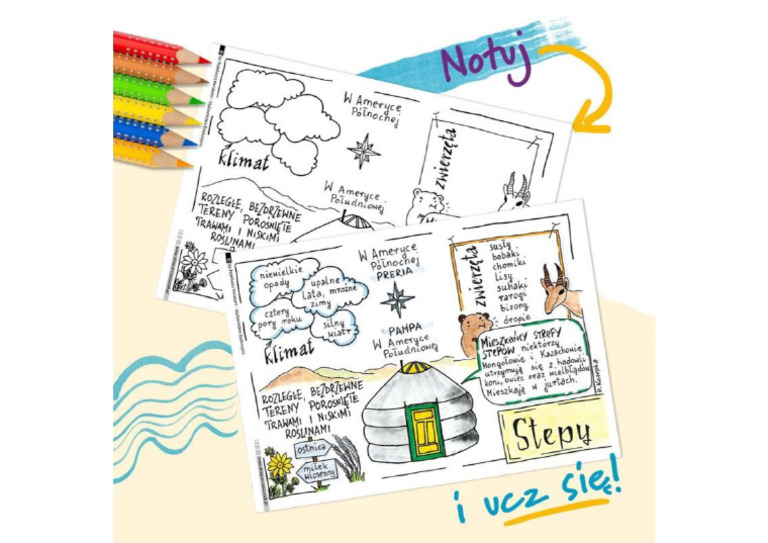 Notuj
W Ameryce
Północnej
klimat
zwierzęta
W Ameryce
Południowej
ROZLEGŁE, BEZDRZEWNE
TERENY POROŚNIĘTE
TRAWAMI I NISKIMI
ROŚLINAMI
niewielkie
opady
upalne
lata, mroźne
zimy
cztery
pory roku
silny
wiatr
klimat
W Ameryce
Północnej
PRERIA
PAMPA
W Ameryce
Południowej
zwierzęta
susły
bobaki
chomiki
lisy
suhaki
rarogi
bizony
dropie
MIESZKAŃCY STREFY
STEPÓW niektórzy
Mongołowie i Kazachowie
utrzymują się z hodowli
koni, owiec oraz wielbłądów
Mieszkają w jurtach.
ROZLEGŁE, BEZDRZEWNE
TERENY POROŚNIĘTE
TRAWAMI I NISKIMI
ROŚLINAMI
ostnica
miłek
wiosenny
Stepy
i ucz się!